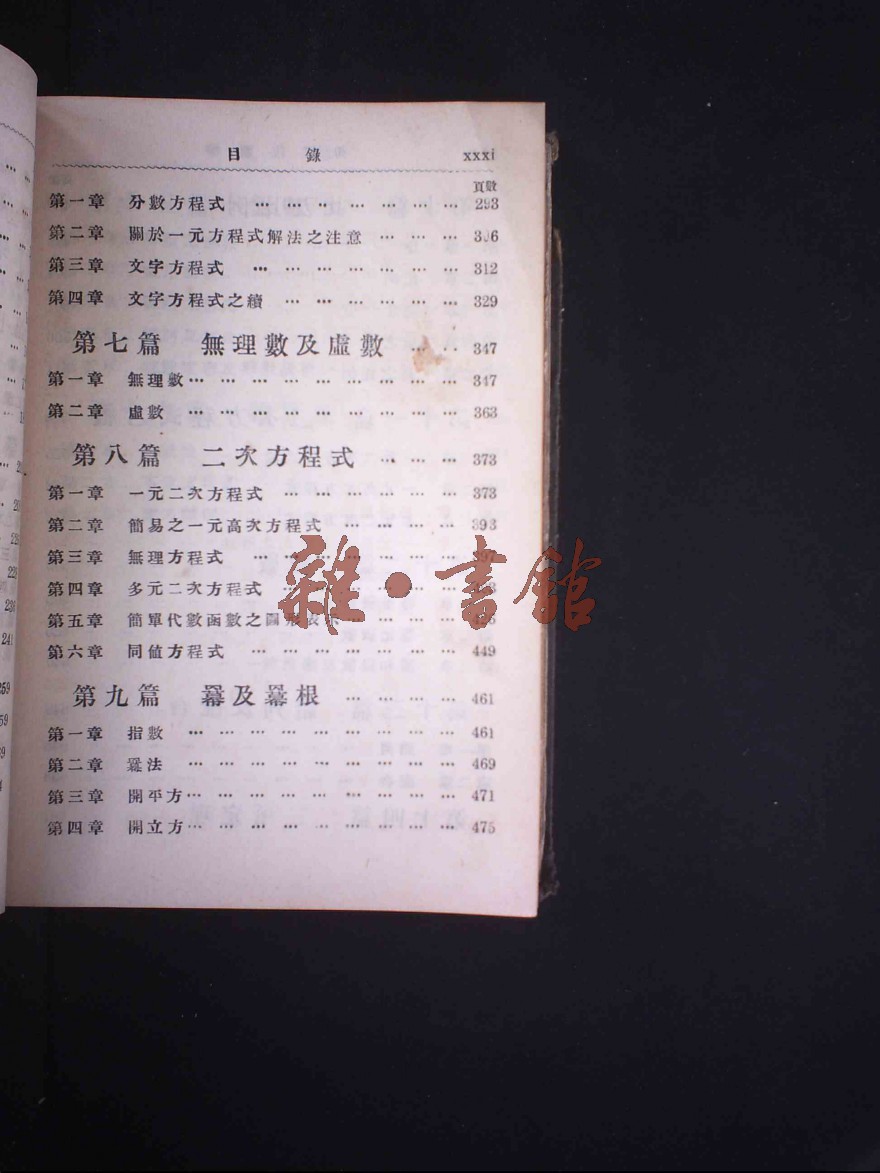 目 錄 xxxi
頁數
第一章 分數方程式 … … … … … … … 293
第二章 關於一元方程式解法之注意 … … … 306
第三章 文字方程式 … … … … … … … 312
第四章 文字方程式之續 … … … … … … 329
第七篇 無理數及虛數 … … 347
第一章 無理數… … … … … … … … … 347
第二章 虛數 … … … … … … … … 363
第八篇 二次方程式 … … … 373
第一章 一元二次方程式 … … … … … … 373
第二章 簡易之一元高次方程式 … … … … 393
第三章 無理方程式 … … … … … … … 397
第四章 多元二次方程式 … … … … … …
第五章 簡單代數函數之圖形表示 … … … …
第六章 同值方程式 … … … … … … … 449
第九篇 冪及冪根 … … … … 461
第一章 指數 … … … … … … … … … 461
第二章 冪法 … … … … … … … … … 469
第三章 開平方… … … … … … … … … 471
第四章 開立方… … … … … … … … … 475
雜·書館
241
259